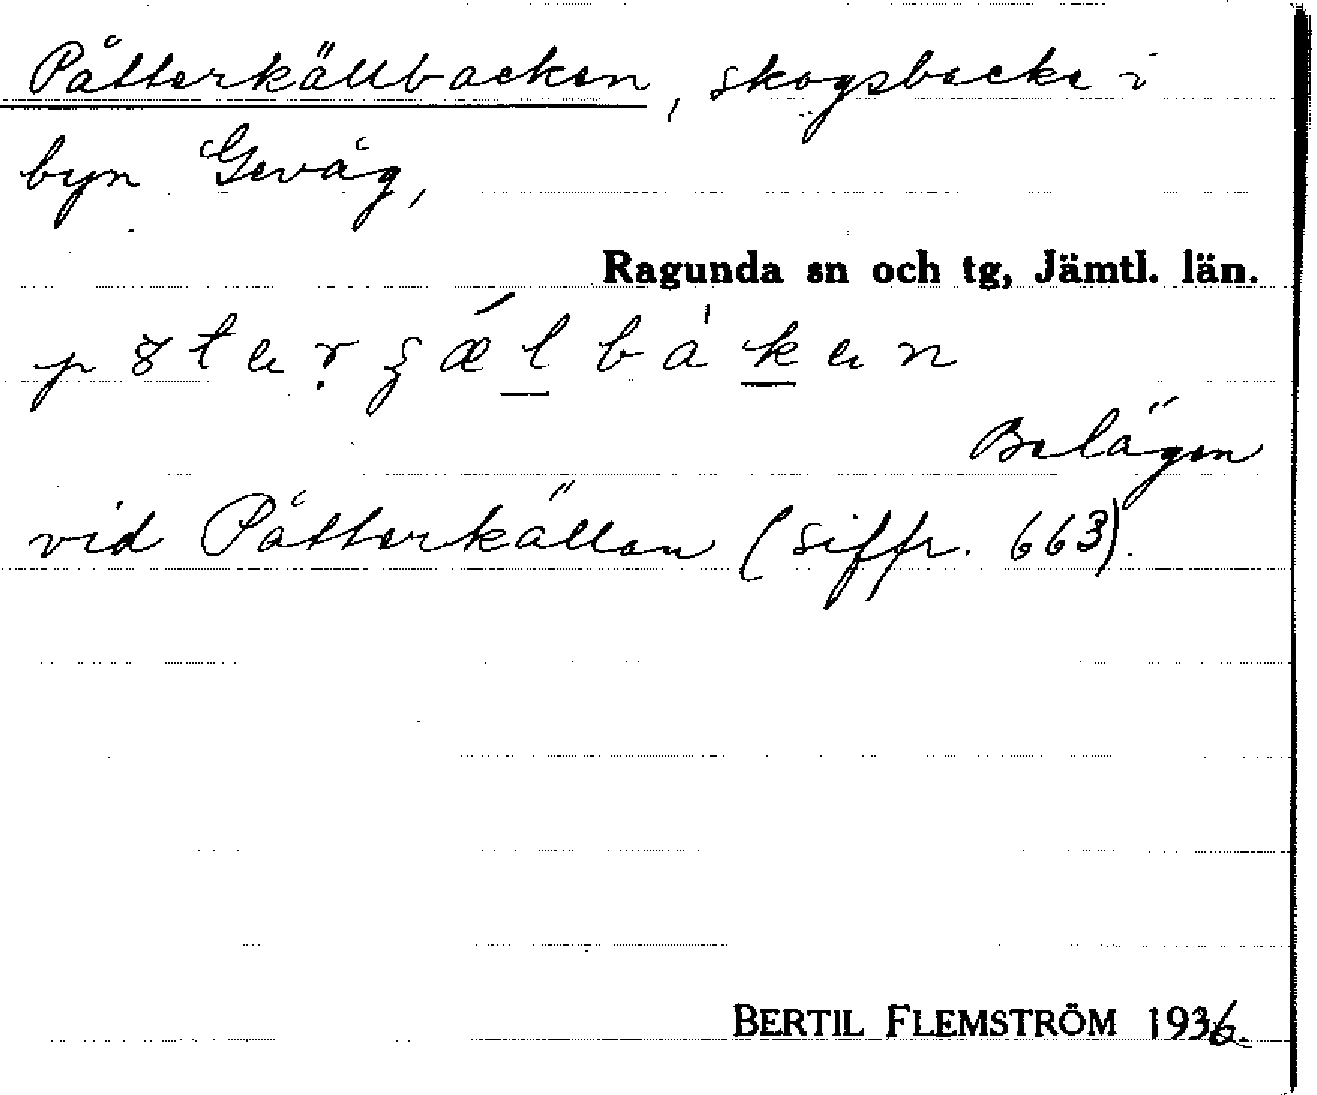 Påtterkällbacken, skogsbacke i
byn Gevåg,
Ragunda sn och tg, Jämtl. län.
Belägen
vid Påtterkällan (siffr. 663).
BERTIL FLEMSTRÖM 1936.